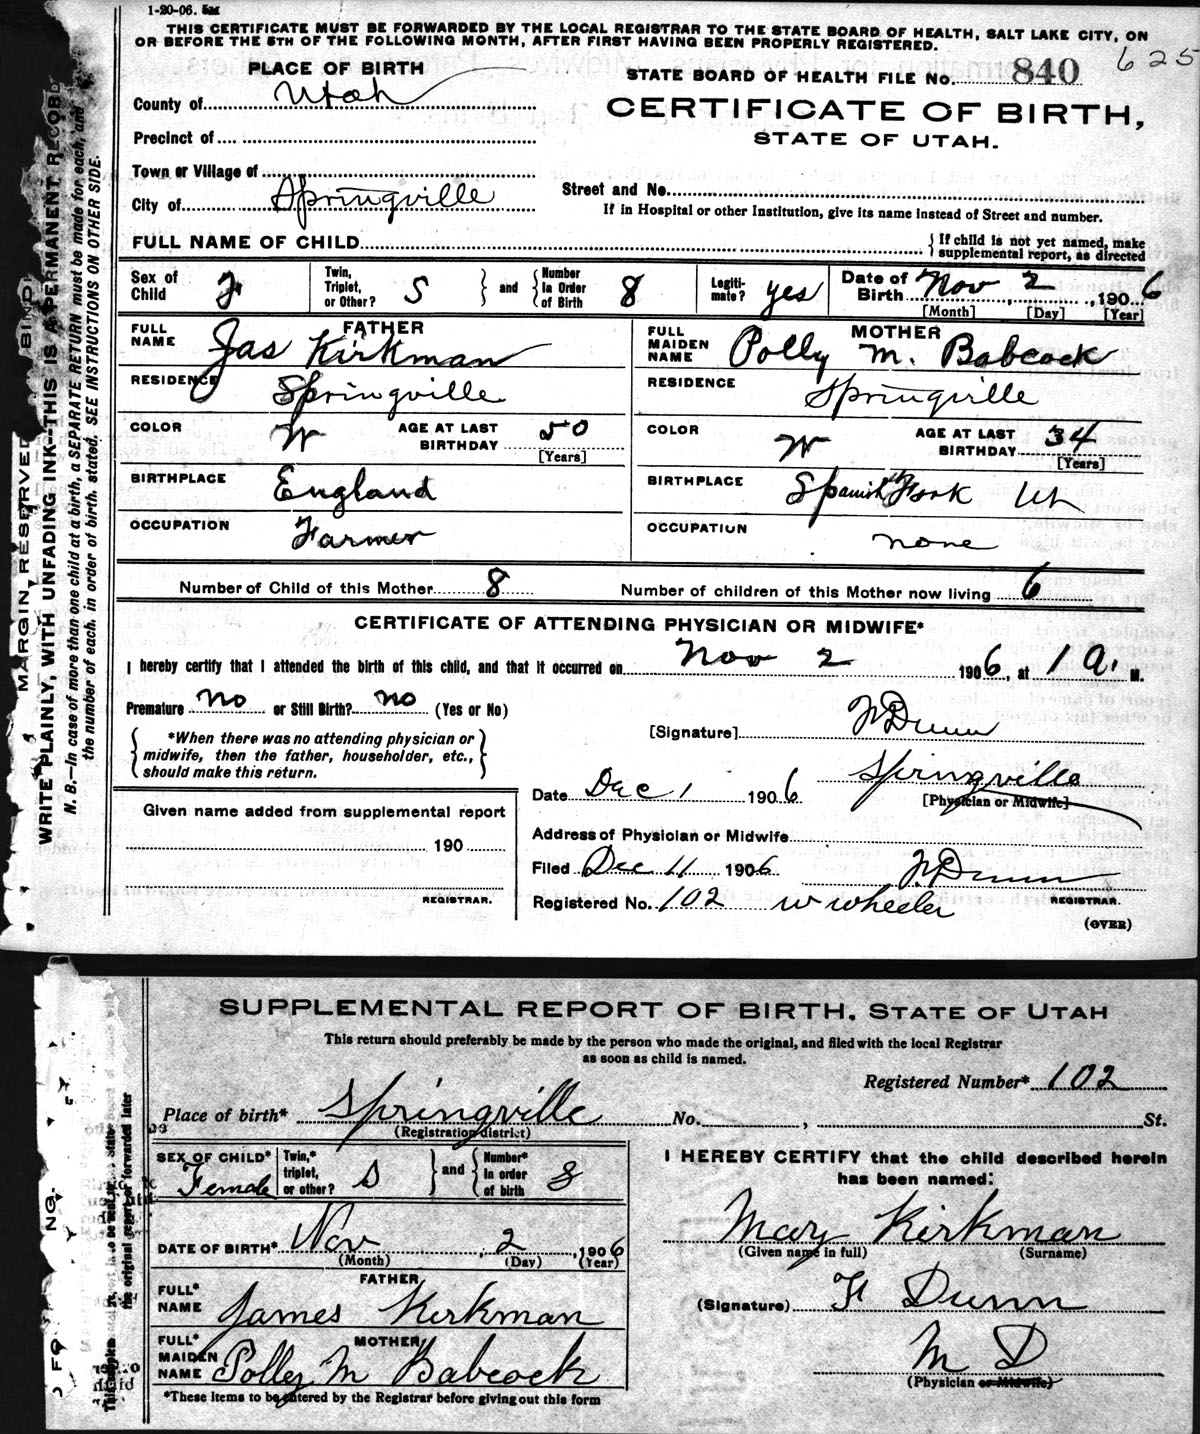 1-20-06. 5M
THIS CERTIFICATE MUST BE FORWARDED BY THE LOCAL REGISTRAR TO THE STATE BOARD OF HEALTH, SALT LAKE CITY, ON
OR BEFORE THE 5TH OF THE FOLLOWING MONTH, AFTER FIRST HAVING BEEN PROPERLY REGISTERED.
625
PLACE OF BIRTH
STATE BOARD OF HEALTH FILE No. 840
County of Utah
CERTIFICATE OF BIRTH,
STATE OF UTAH.
Precinct of
Town or Village of
City of Springville
Street and No.
If in Hospital or other Institution, give its name instead of Street and number.
FULL NAME OF CHILD
{ If child is not yet named, make
supplemental report, as directed
Sex of Child F
Twin, Triplet, or Other? S } and { Number In Order of Birth 8
Legitimate? yes
Date of Birth Nov 2, 1906
[Month] [Day] [Year]
FATHER
FULL NAME Jas Kirkman
RESIDENCE Springville
COLOR W AGE AT LAST BIRTHDAY 50
[Years]
BIRTHPLACE England
OCCUPATION Farmer
MOTHER
FULL MAIDEN NAME Polly M. Babcock
RESIDENCE Springville
COLOR W AGE AT LAST BIRTHDAY 34
[Years]
BIRTHPLACE Spanish Fork Ut
OCCUPATION none
Number of Child of this Mother 8 Number of children of this Mother now living 6
CERTIFICATE OF ATTENDING PHYSICIAN OR MIDWIFE*
I hereby certify that I attended the birth of this child, and that it occurred on Nov 2 1906, at 1 a. M.
Premature no or Still Birth? no (Yes or No)
{ *When there was no attending physician or
midwife, then the father, householder, etc.,
should make this return. }
[Signature] F Dunn
Springville
[Physician or Midwife]
Date Dec 1 1906
Given name added from supplemental report
190
REGISTRAR.
Address of Physician or Midwife
Filed Dec 11 1906 F Dunn
REGISTRAR.
Registered No. 102 W Wheeler
(OVER)
MARGIN RESERVED BIND
WRITE PLAINLY, WITH UNFADING INK--THIS IS A PERMANENT RECORD
N. B.—In case of more than one child at a birth, a SEPARATE RETURN must be made for each, and
the number of each, in order of birth, stated. SEE INSTRUCTIONS ON OTHER SIDE.
SUPPLEMENTAL REPORT OF BIRTH, STATE OF UTAH
This return should preferably be made by the person who made the original, and filed with the local Registrar
as soon as child is named.
Registered Number* 102
Place of birth* Springville No. , St.
(Registration district)
SEX OF CHILD* Female
Twin,* triplet, or other? S } and { Number* In order of birth 8
DATE OF BIRTH* Nov, 2, 1906
(Month) (Day) (Year)
FATHER
FULL* NAME James Kirkman
MOTHER
FULL* MAIDEN NAME Polly M Babcock
*These items to be entered by the Registrar before giving out this form
I HEREBY CERTIFY that the child described herein
has been named:
Mary Kirkman
(Given name in full) (Surname)
(Signature) F Dunn
M D
(Physician or Midwife)
the original report or forwarded later